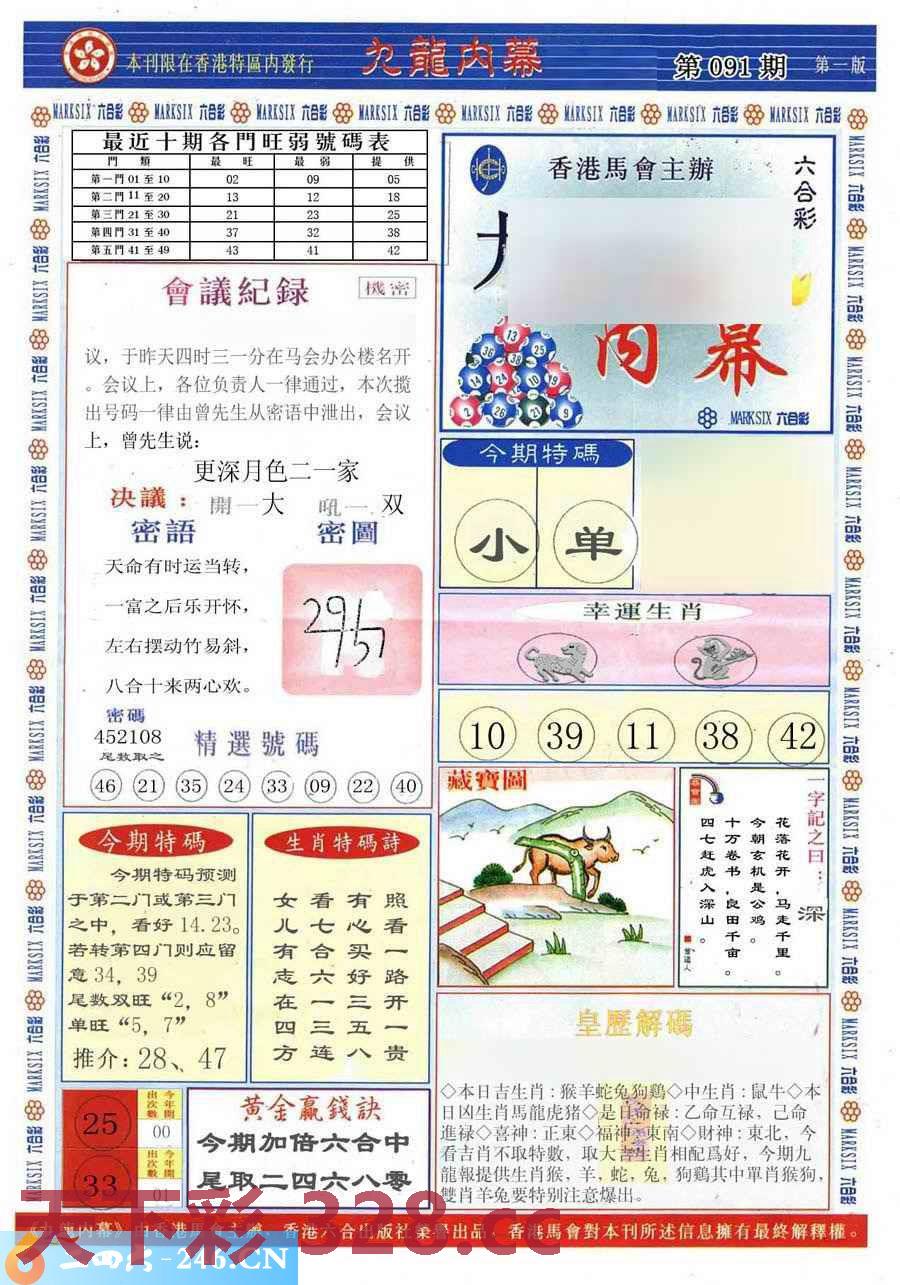 本刊限在香港特區内發行
九龍内幕
第 091 期
第一版
MARKSIX 六合彩
最近十期各門旺弱號碼表
門 類 最 旺 最 弱 提 供
第一門 01 至 10 02 09 05
第二門 11 至 20 13 12 18
第三門 21 至 30 21 23 25
第四門 31 至 40 37 32 38
第五門 41 至 49 43 41 42
會議紀録
機密
议，于昨天四时三一分在马会办公楼名开
。会议上，各位负责人一律通过，本次揽
出号码一律由曾先生从密语中泄出，会议
上，曾先生说：
更深月色二一家
决議：
開一大
吼一 双
密語
密圖
天命有时运当转，
一富之后乐开怀，
左右摆动竹易斜，
八合十来两心欢。
密碼
452108
尾数取之
精選號碼
46 21 35 24 33 09 22 40
香港馬會主辦
六合彩
内幕
13
36 38 25
14 24 10 19
2 26 21 9
MARKSIX 六合彩
今期特碼
小 单
幸運生肖
10 39 11 38 42
藏寶圖
一字記之曰：深
花落花开，马走千里。
今朝玄机是公鸡。
十万卷书，良田千亩。
四七赶虎入深山。
曾道人
今期特碼
今期特码预测
于第二门或第三门
之中，看好 14.23。
若转第四门则应留
意 34，39
尾数双旺“2，8”
单旺“5，7”
推介：28、47
生肖特碼詩
女看有照
儿七心看
有合买一
志六好路
在一三开
四三五一
方连八贵
25
今年開出次數
00
33
今年開出次數
01
黄金赢錢訣
今期加倍六合中
尾取二四六八零
皇歷解碼
◇本日吉生肖：猴羊蛇兔狗鷄◇中生肖：鼠牛◇本
日凶生肖馬龍虎猪◇是日命禄：乙命互禄，己命
進禄◇喜神：正東◇福神：東南◇財神：東北，今
看吉肖不取特數，取大吉生肖相配爲好，今期九
龍報提供生肖猴，羊，蛇，兔，狗鷄其中單肖猴狗，
雙肖羊兔要特别注意爆出。
《九龍内幕》由香港馬會主辦，香港六合出版社榮譽出品，香港馬會對本刊所述信息擁有最終解釋權。
天下彩 328.cc
246.CN